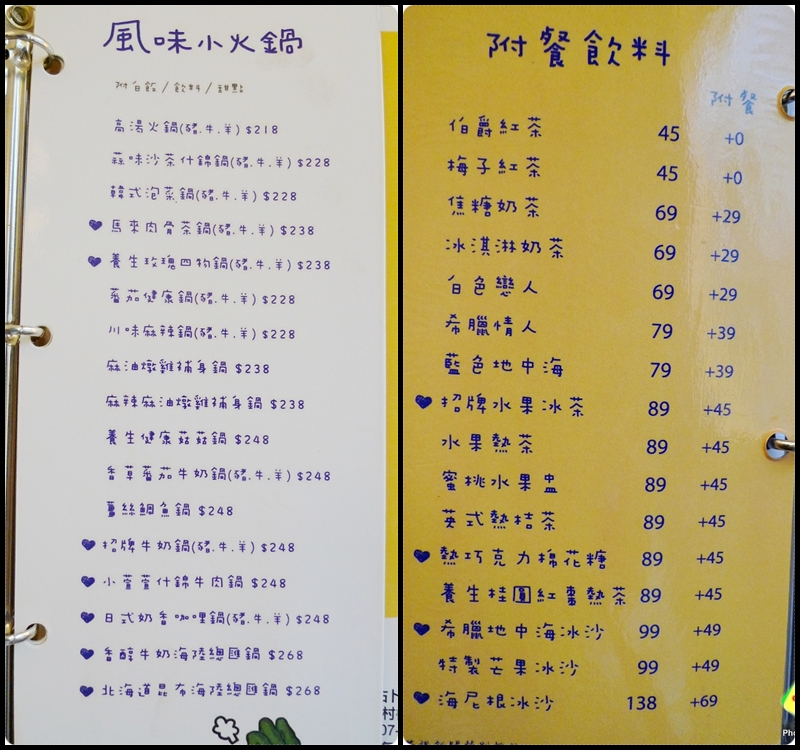 風味小火鍋
附白飯/飲料/甜點
高湯火鍋(豬.牛.羊) $218
蒜味沙茶什錦鍋(豬.牛.羊) $228
韓式泡菜鍋(豬.牛.羊) $228
馬來肉骨茶鍋(豬.牛.羊) $238
養生玫瑰四物鍋(豬.牛.羊) $238
蕃茄健康鍋(豬.牛.羊) $228
川味麻辣鍋(豬.牛.羊) $228
麻油燉雞補身鍋 $238
麻辣麻油燉雞補身鍋 $238
養生健康菇菇鍋 $248
香草蕃茄牛奶鍋(豬.牛.羊) $248
薑絲鯛魚鍋 $248
招牌牛奶鍋(豬.牛.羊) $248
小萱萱什錦牛肉鍋 $248
日式奶香咖哩鍋(豬.牛.羊) $248
香醇牛奶海陸總匯鍋 $268
北海道昆布海陸總匯鍋 $268
附餐飲料
附餐
伯爵紅茶 45 +0
梅子紅茶 45 +0
焦糖奶茶 69 +29
冰淇淋奶茶 69 +29
白色戀人 69 +29
希臘情人 79 +39
藍色地中海 79 +39
招牌水果冰茶 89 +45
水果熱茶 89 +45
蜜桃水果盅 89 +45
英式熱桔茶 89 +45
熱巧克力棉花糖 89 +45
養生桂圓紅棗熱茶 89 +45
希臘地中海冰沙 99 +49
特製芒果冰沙 99 +49
海尼根冰沙 138 +69